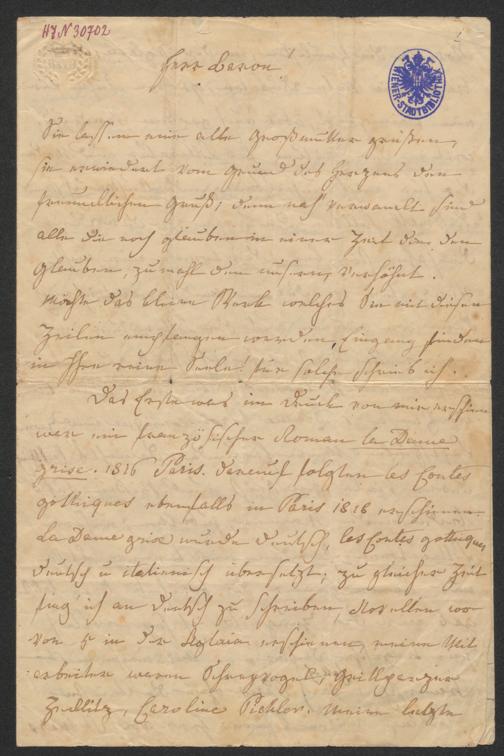 HIN 30702
Herr Baron!
WIENER-STADTBIBLIOTHEK
Sie lassen eine alte Großmutter grüßen,
sie erwiedert vom Grund des Herzens den
freundlichen Gruß; denn nah verwandt sind
alle die noch glauben in einer Zeit die den
Glauben, zumahl den unsern verhöhnt.
Möchte das kleine Werk welches Sie mit diesen
Zeilen empfangen werden, Eingang finden
in Ihre reine Seele! für solche schrieb ich.
Das Erste was im Druck von mir erschien
war ein französischer Roman la Dame
grise. 1816 Paris. darauf folgten les Contes
gothiques ebenfalls in Paris 1818 erschienen.
La Dame grise wurde deutsch, les Contes gothiques
deutsch u italienisch übersetzt; zu gleicher Zeit
fing ich an deutsch zu schreiben, Novellen wo
von 5 in der Aglaia erschienen, meine Mit
arbeiter waren Schreyvogel, Grillparzer
Zedlitz, Caroline Pichler. Meine letzte